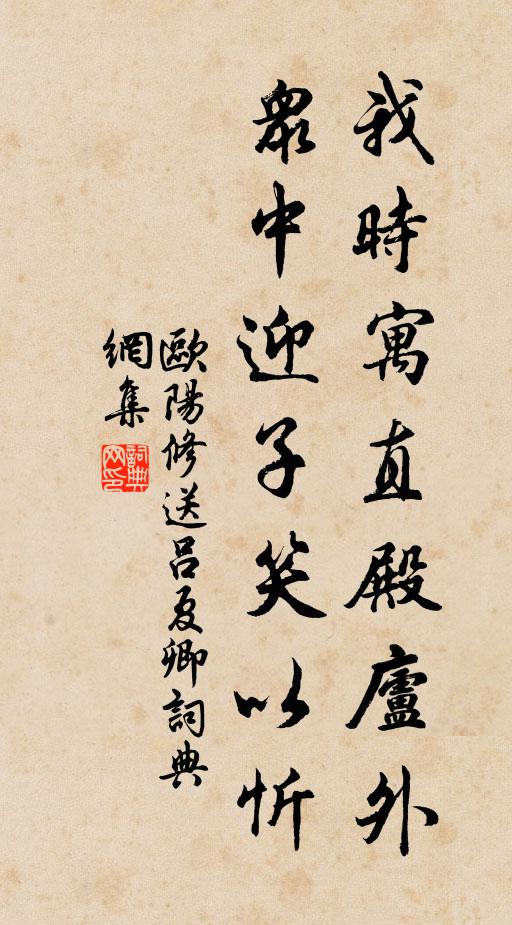 我時寓直殿廬外
眾中迎子笑以忻
歐陽修送呂夏卿詞典
網集
詞典
网印